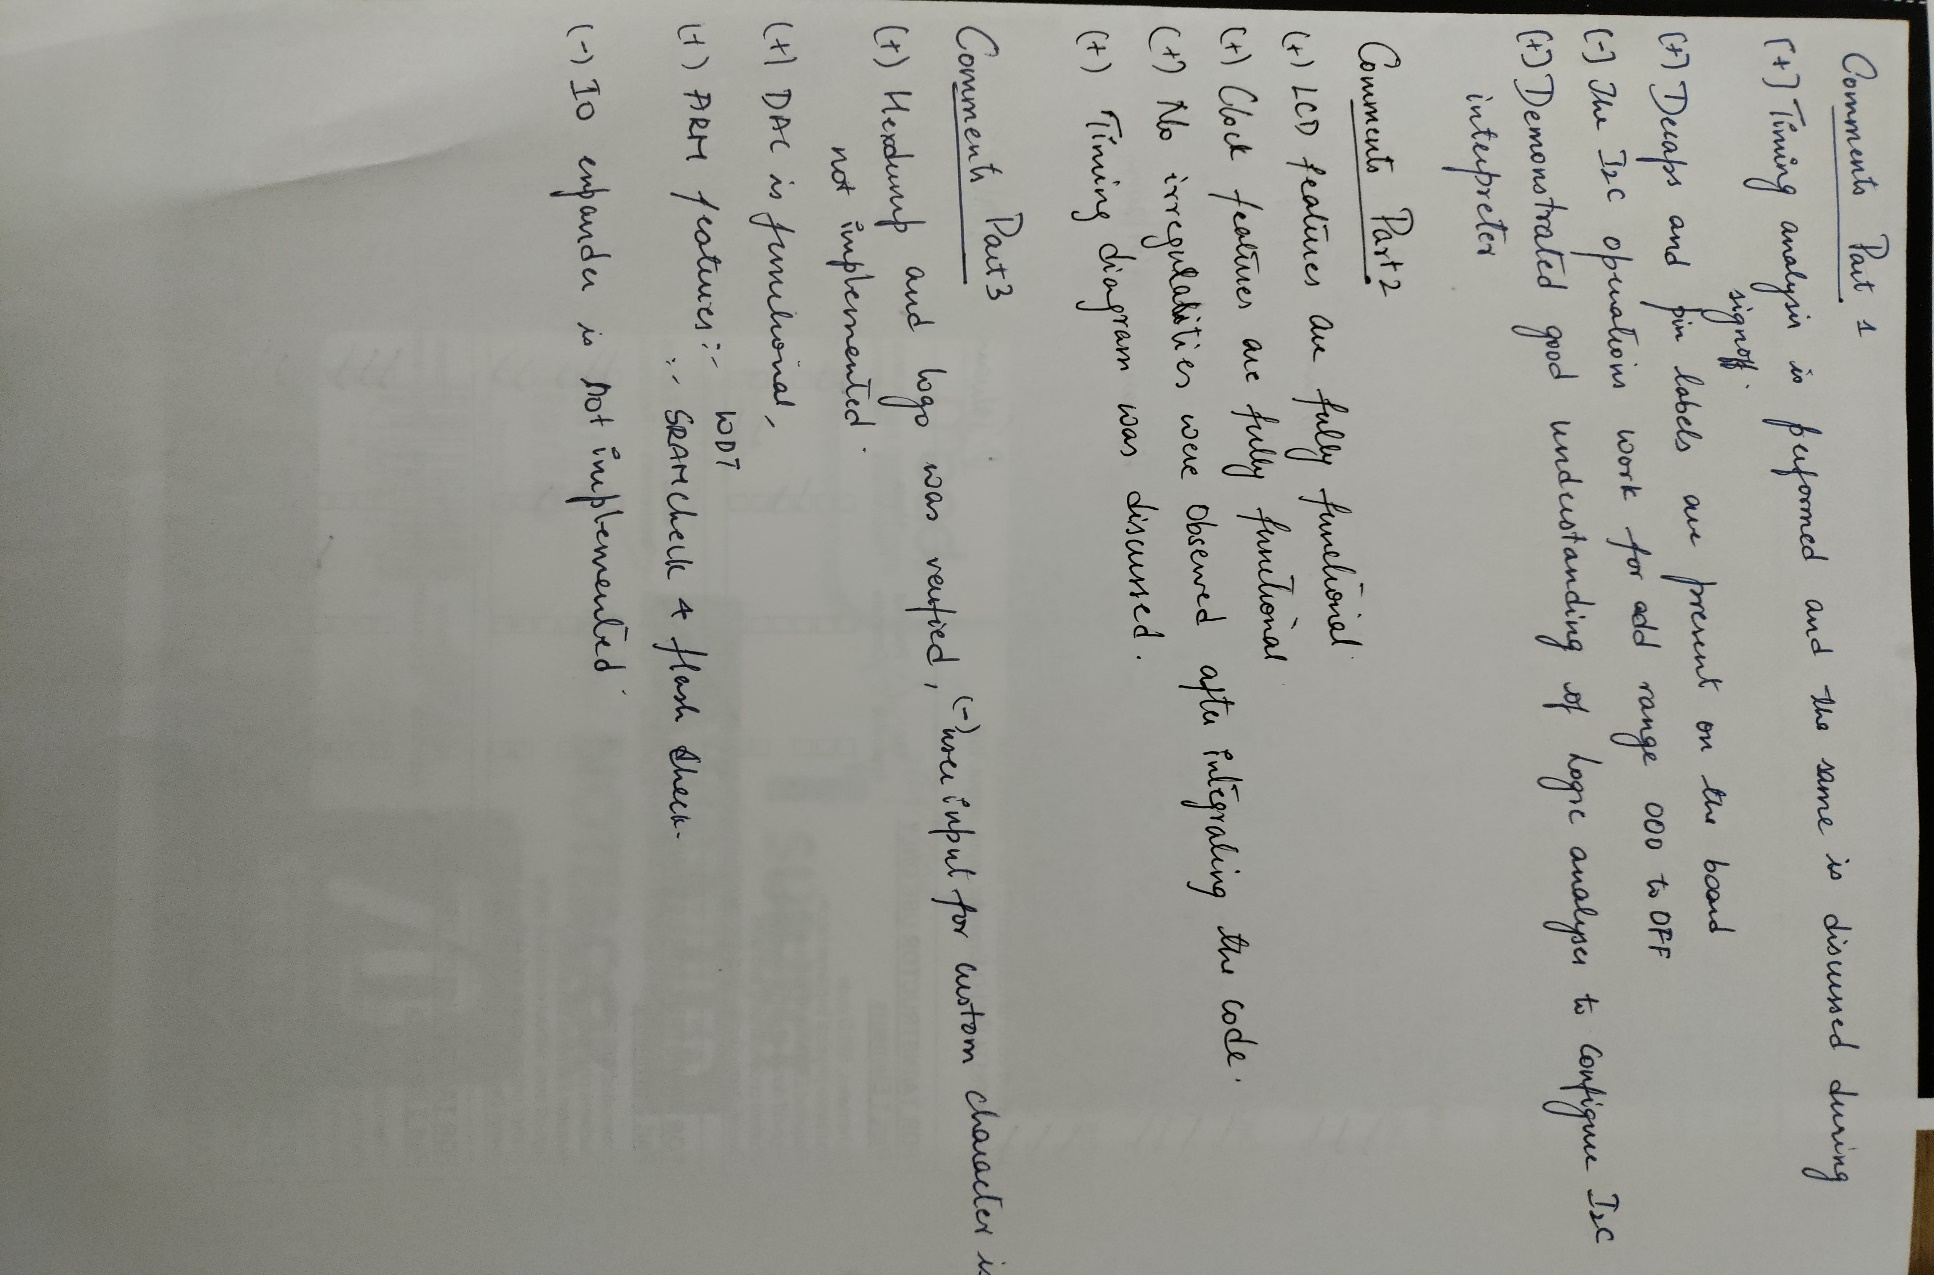 Comments Part 1
(+) Timing analysis is performed and the same is discussed during
signoff.
(+) Decaps and pin labels are present on the board
(-) The I2C operations work for add range 000 to OFF
(+) Demonstrated good understanding of logic analyser to configure I2C
interpreter
Comments Part 2
(+) LCD features are fully functional.
(+) Clock features are fully functional
(+) No irregularities were observed after integrating the code.
(+) Timing diagram was discussed.
Comments Part 3
(+) Hexdump and logo was verified, (-) user input for custom character is
not implemented.
(+) DAC is functional,
(+) ARM features:- WDT
:- SRAM check & flash check.
(-) IO expander is not implemented.